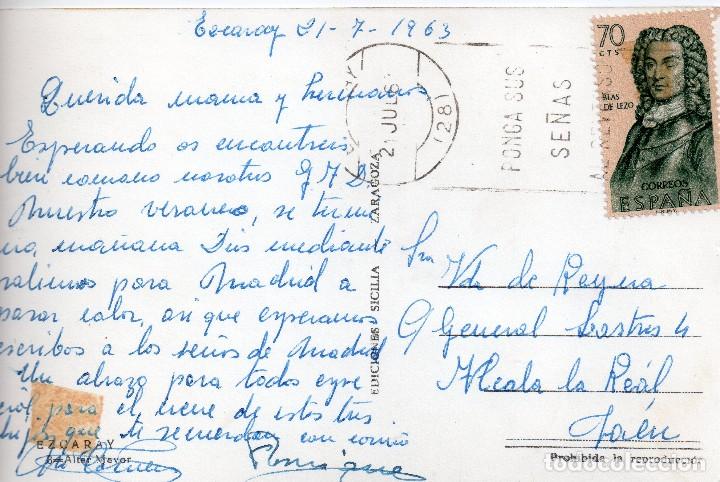 Escaray 21-7-1963
Querida mama y hermanos
Esperando os encontreis
bien como nosotros G.A.D.
Nuestro veraneo, se termi
na, mañana Dios mediante
salimos para Madrid a
pasar calor, asi que esperamos
escribos a los señas de Madrid
Un abrazo para todos
para el nene de estos tres
que te recuerdan con cariño
EZCARAY
Altar Mayor
EDICIONES SICILIA ZARAGOZA
21 JUL 6
(28)
PONGA SUS
SEÑAS
70
CTS
BLAS
DE LEZO
CORREOS
ESPAÑA
Sra Vda de Reyna
General Lastres 4
Alcala la Reál
Jaén
Prohibida la reproducción
todocoleccion